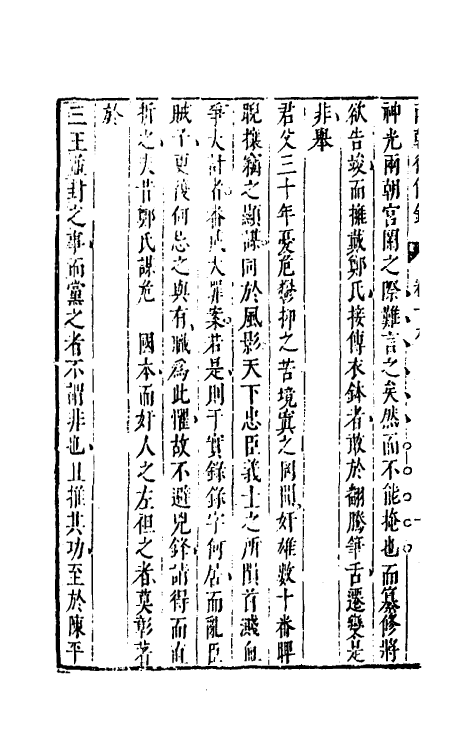 兩朝從信錄 卷十九
神光兩朝宮闈之際難言之矣然而不能掩也而纂修將
欲告竣而擁戴鄭氏接傳衣鉢者敢於翻騰筆舌遷變是
非舉
君父三十年憂危鬱抑之苦境寘之罔聞奸雄數十番睥
睨攘竊之顯謀同於風影天下忠臣義士之所隕首濺血
爭大計者番與大罪案若是則于實錄錄字何居而亂臣
賊子更復何忌之與有職為此懼故不避兇鋒請得而直
折之夫昔鄭氏謀危 國本而奸人之左袒之者莫彰著
於
三王並封之事而黨之者不謂非也且推其功至於陳平